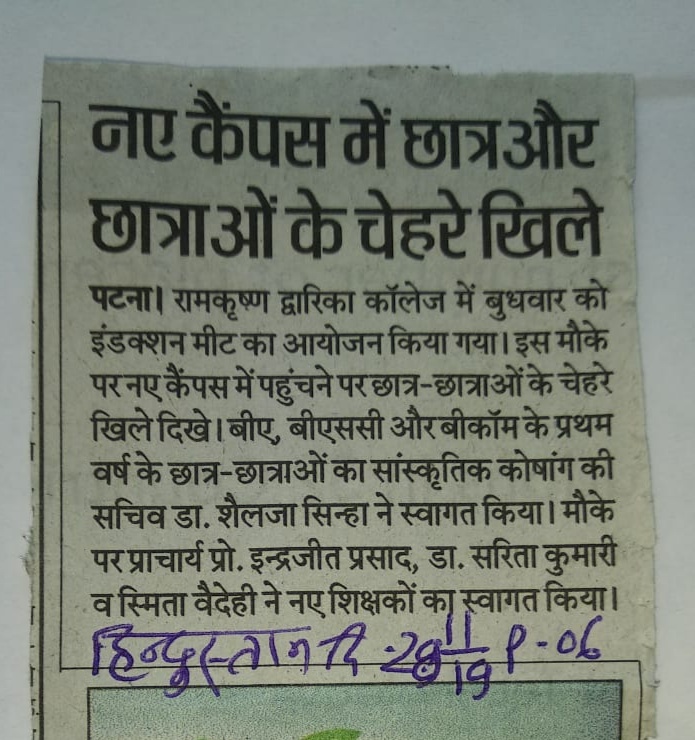 नए कैंपस में छात्र और
छात्राओं के चेहरे खिले
पटना। रामकृष्ण द्वारिका कॉलेज में बुधवार को
इंडक्शन मीट का आयोजन किया गया। इस मौके
पर नए कैंपस में पहुंचने पर छात्र-छात्राओं के चेहरे
खिले दिखे। बीए, बीएससी और बीकॉम के प्रथम
वर्ष के छात्र-छात्राओं का सांस्कृतिक कोषांग की
सचिव डा. शैलजा सिन्हा ने स्वागत किया। मौके
पर प्राचार्य प्रो. इन्द्रजीत प्रसाद, डा. सरिता कुमारी
व स्मिता वैदेही ने नए शिक्षकों का स्वागत किया।
हिन्दुस्तान दि 11/19 P-06